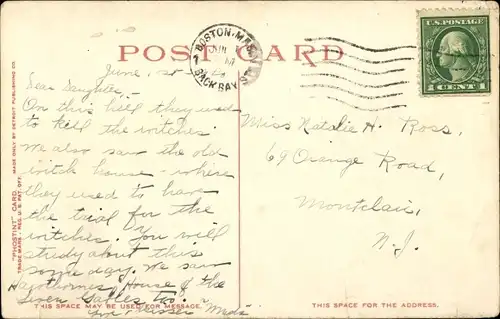 POST CARD
BOSTON, MASS.
BACK BAY
U.S. POSTAGE
1 CENT 1
June,
Dear Daughter,
On this hill they used
to kill the witches.
We also saw the old
witch house - where
they used to have
the trial for the
witches. You will
study about this
some day. We saw
Hawthorne's House of the
Seven Gables too.
THIS SPACE MAY BE USED FOR MESSAGE.
"PHOSTINT" CARD. MADE ONLY BY DETROIT PUBLISHING CO.
TRADE MARK REG. U.S. PAT. OFF.
Miss Natalie H. Ross,
69 Orange Road,
Montclair,
N.J.
THIS SPACE FOR THE ADDRESS.